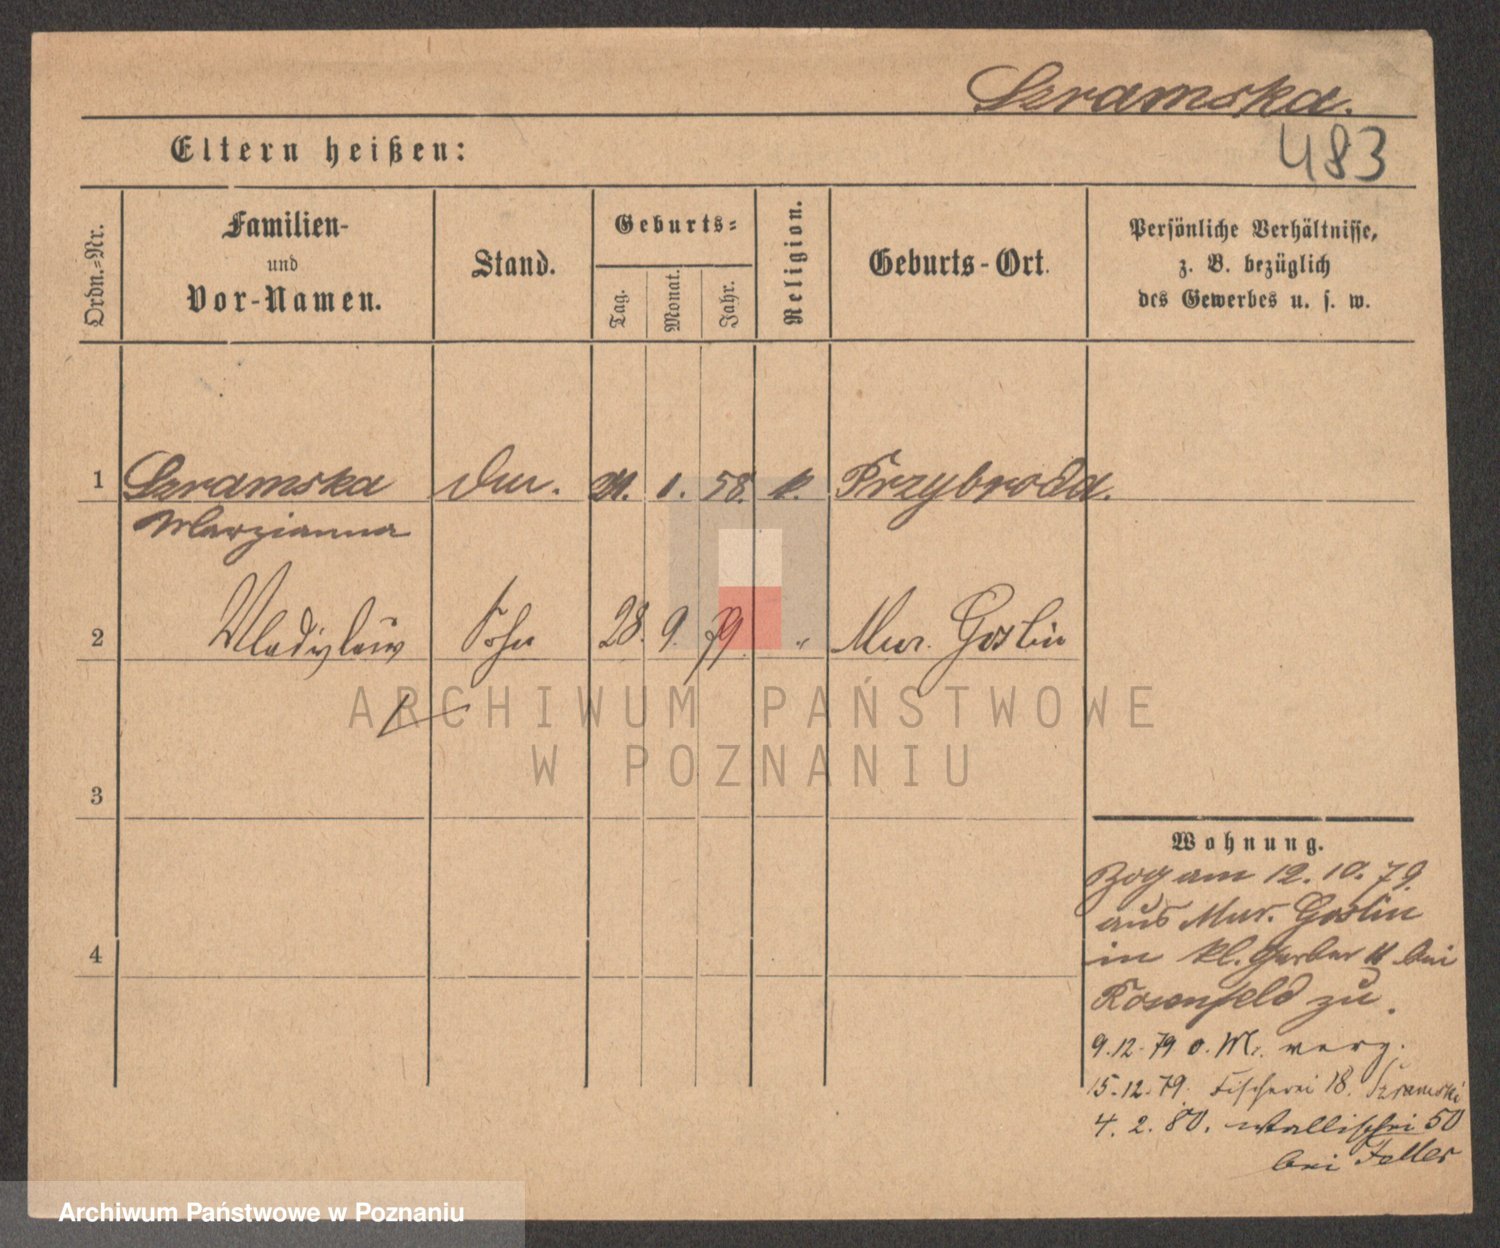 Szramska.
483
Eltern heißen:
Ordn.-Nr.
Familien-
und
Vor-Namen.
Stand.
Geburts-
Tag.
Monat.
Jahr.
Religion.
Geburts-Ort.
Persönliche Verhältnisse,
z. B. bezüglich
des Gewerbes u. s. w.
1 Szramska 1. 58. k. Przybroda.
Marzianna
2 Wladyslaw Sohn 28. 9. 79. " Mur. Goslin
3
4
ARCHIWUM PAŃSTWOWE
W POZNANIU
Wohnung.
Zog am 12. 10. 79
aus Mur. Goslin
in kl. Gerber 11 bei
Rosenfeld zu.
9.12.79 o. M. verz.
15.12.79. Fischerei 18. Szramski
4. 2. 80. Wallischei 50
bei Feller
Archiwum Państwowe w Poznaniu